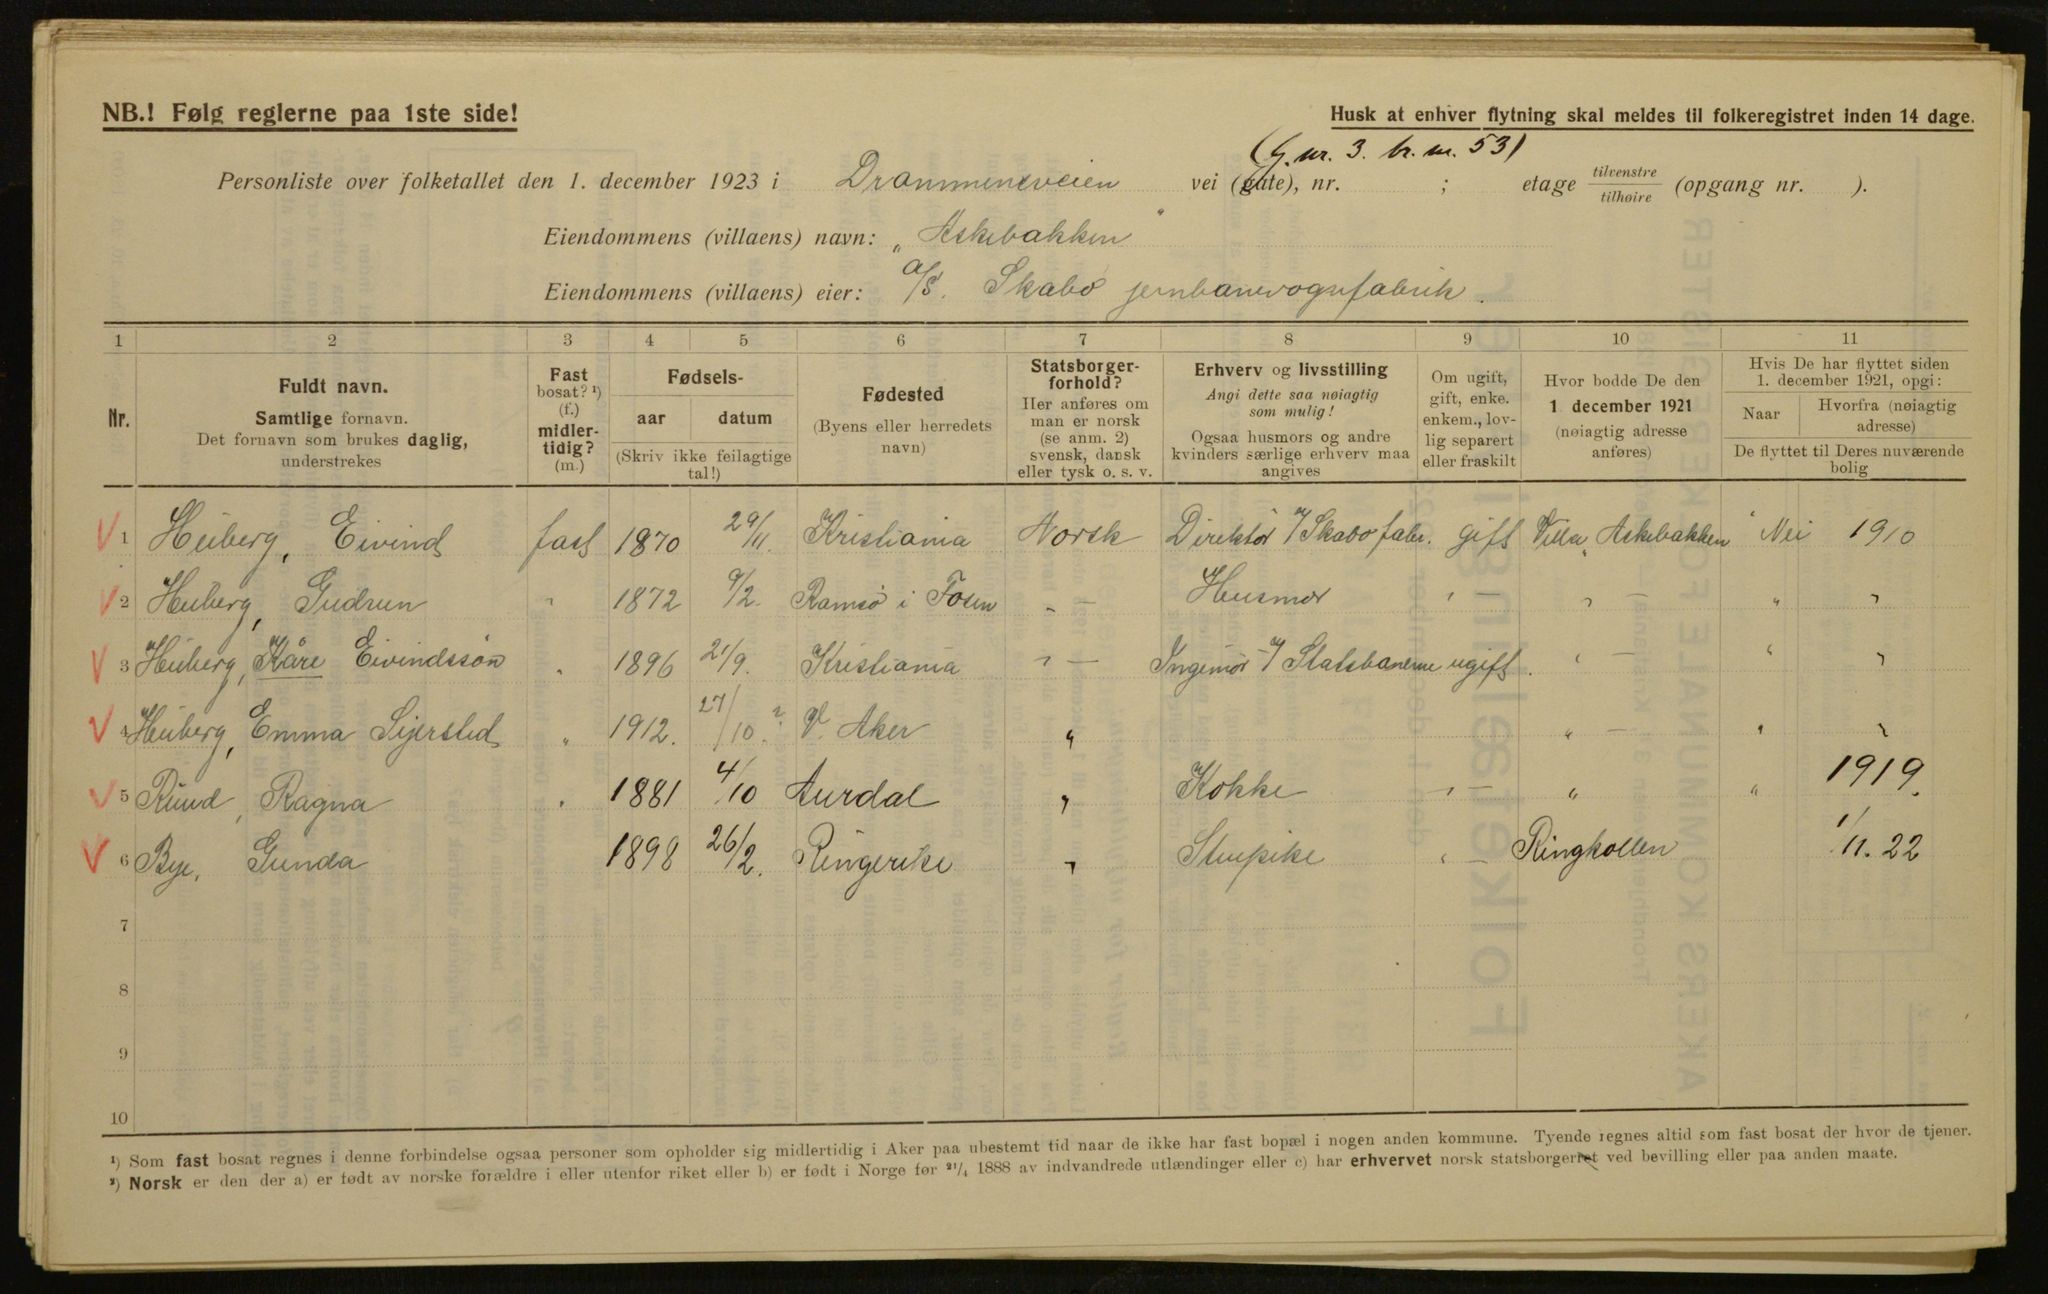 NB.! Følg reglerne paa 1ste side!
Husk at enhver flytning skal meldes til folkeregistret inden 14 dage.
(G. nr. 3. br. nr. 53)
Personliste over folketallet den 1. december 1923 i Drammensveien vei (gate), nr. ; etage tilvenstre/tilhøire (opgang nr. ).
Eiendommens (villaens) navn: „Askebakken"
Eiendommens (villaens) eier: A/S. Skabo jernbanevognfabrik.
1 2 3 4 5 6 7 8 9 10 11
Nr.
Fuldt navn.
Samtlige fornavn.
Det fornavn som brukes daglig,
understrekes
Fast
bosat? ¹)
(f.)
midler-
tidig?
(m.)
Fødsels-
aar datum
(Skriv ikke feilagtige
tal!)
Fødested
(Byens eller herredets
navn)
Statsborger-
forhold?
Her anføres om
man er norsk
(se anm. 2)
svensk, dansk
eller tysk o. s. v.
Erhverv og livsstilling
Angi dette saa nøiagtig
som mulig!
Ogsaa husmors og andre
kvinders særlige erhverv maa
angives
Om ugift,
gift, enke.
enkem., lov-
lig separert
eller fraskilt
Hvor bodde De den
1 december 1921
(nøiagtig adresse
anføres)
Hvis De har flyttet siden
1. december 1921, opgi:
Naar Hvorfra (nøiagtig
adresse)
De flyttet til Deres nuværende
bolig
1 Heiberg, Eivind fast 1870 29/11. Kristiania Norsk Direktør v/ Skabo fabr. gift Villa „Askebakken" Nei 1910
2 Heiberg, Gudrun " 1872 9/2. Ramsö i Fosen " — Husmor " " — " "
3 Heiberg, Kåre Eivindssøn " 1896 21/9. Kristiania " — Ingeniör v/ Statsbanerne ugift. " — " "
4 Heiberg, Emma Sejersted " 1912. 27/10? V. Aker " " — " "
5 Ruud, Ragna " 1881 4/10 Aurdal " Kokke " — " " 1919.
6 Bye, Gunda 1898 26/2. Ringerike " Stuepike " — Ringkollen 1/11. 22
7
8
9
10
¹) Som fast bosat regnes i denne forbindelse ogsaa personer som opholder sig midlertidig i Aker paa ubestemt tid naar de ikke har fast bopæl i nogen anden kommune. Tyende regnes altid som fast bosat der hvor de tjener.
²) Norsk er den der a) er født av norske forældre i eller utenfor riket eller b) er født i Norge før ²¹/₄ 1888 av indvandrede utlændinger eller c) har erhvervet norsk statsborgerret ved bevilling eller paa anden maate.